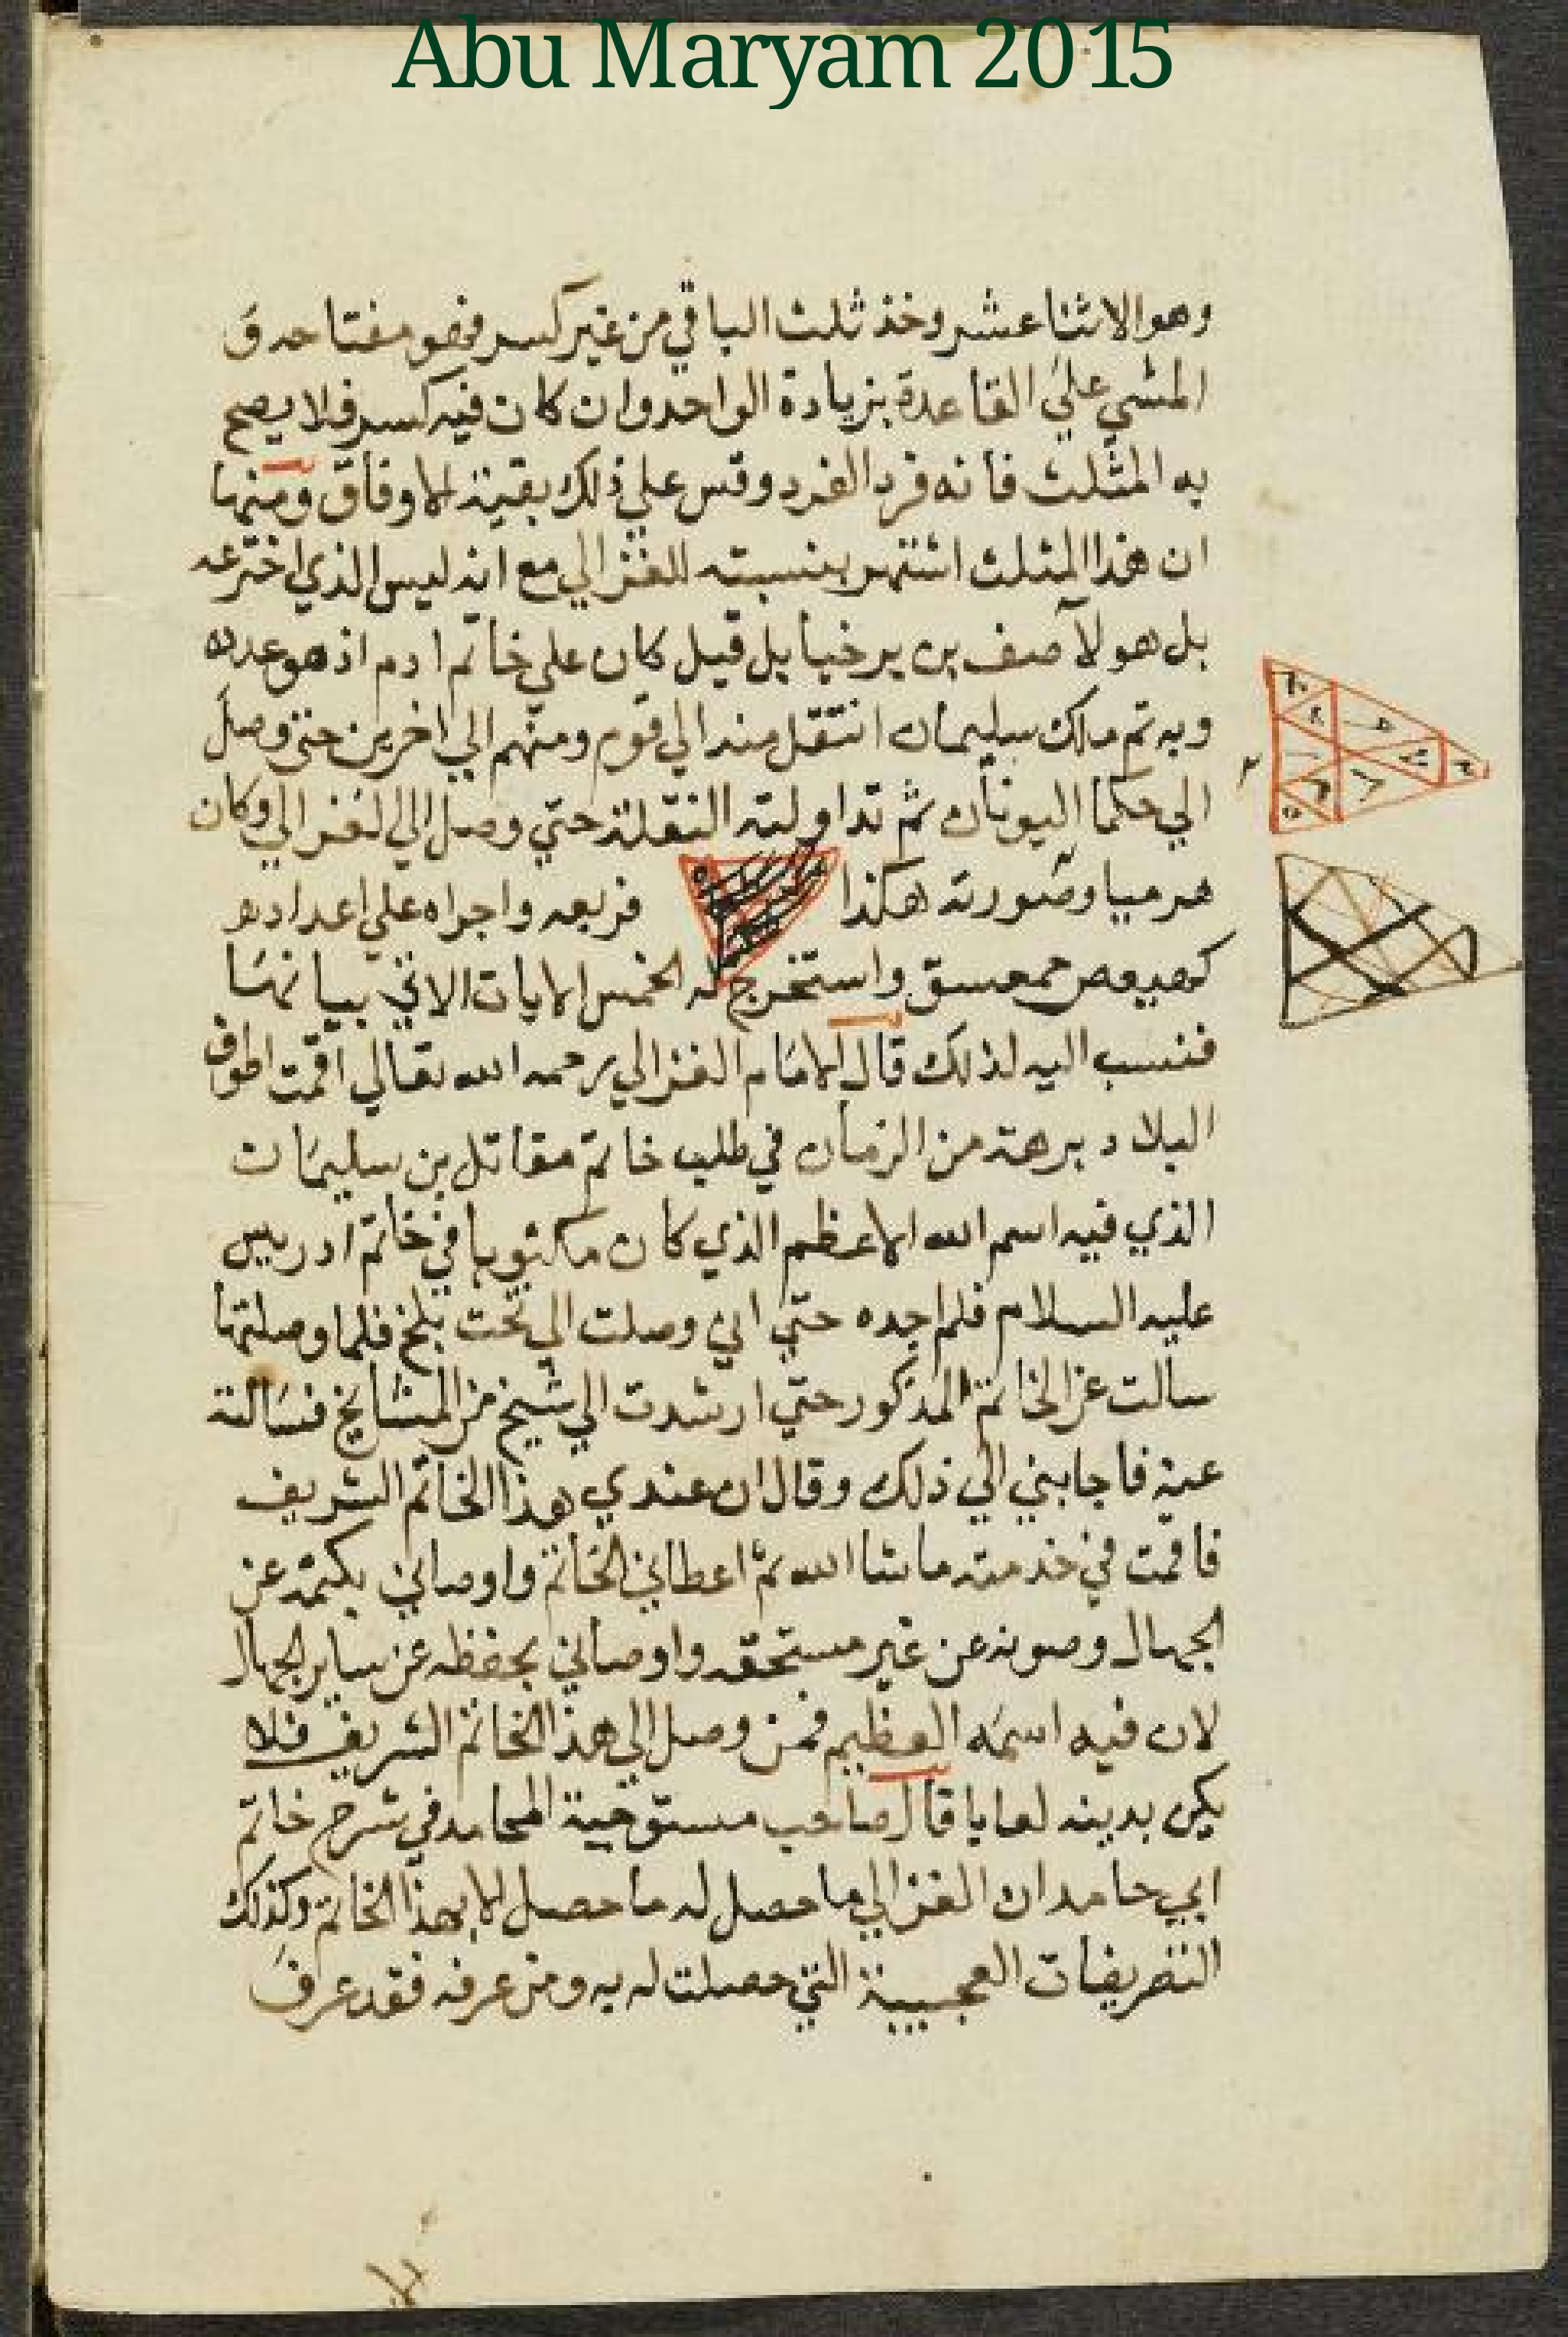 Abu Maryam 2015
وهو الاثنا عشر وخذ ثلث الباقي من غير كسر فهو مفتاحه و
المشي علي القاعدة بزيادة الواحد وان كان فيه كسر فلا يصح
به المثلث فانه فرد الفرد وقس علي ذلك بقية الاوفاق ومنها
ان هذا المثلث اشتهر بنسبته للغزالي مع انه ليس الذي اخترعه
بل هو لآصف بن برخيا بل قيل كان علي خاتم ادم اذ هو عدده
وبه تم ملك سليمان انتقل منه الي قوم ومنهم الي اخرين حتى وصل
الي حكما اليونان ثم تداولته النقلة حتي وصل الي الغزالي وكان
هرميا وصورته هكذا فربعه واجراه علي اعداده
كهيعص حمعسق واستخرج له الخمس الايات الاتي بيانها
فنسب اليه لذلك قال الامام الغزالي رحمه الله تعالي اقمت اطوف
البلاد برهة من الزمان في طلب خاتم مقاتل بن سليمان
الذي فيه اسم الله الاعظم الذي كان مكتوبا في خاتم ادريس
عليه السلام فلم اجده حتي اني وصلت الي تحت بلخ فلما وصلتها
سالت عن الخاتم المذكور حتي ارشدت الي شيخ من المشايخ فسالته
عنه فاجابني الي ذلك وقال ان عندي هذا الخاتم الشريف
فاقمت في خدمته ما شا الله ثم اعطاني الخاتم واوصاني بكتمه عن
الجهال وصونه عن غير مستحقه واوصاني بحفظه عن ساير الجهال
لان فيه اسمه العظيم فمن وصل الي هذا الخاتم الشريف فلا
يكن بدينه لعابا قال صاحب مستوجبة المحامد في شرح خاتم
ابي حامد ان الغزالي ما حصل له ما حصل الا بهذا الخاتم وكذلك
التصريفات العجيبة التي حصلت له به ومن عرفه فقد عرف